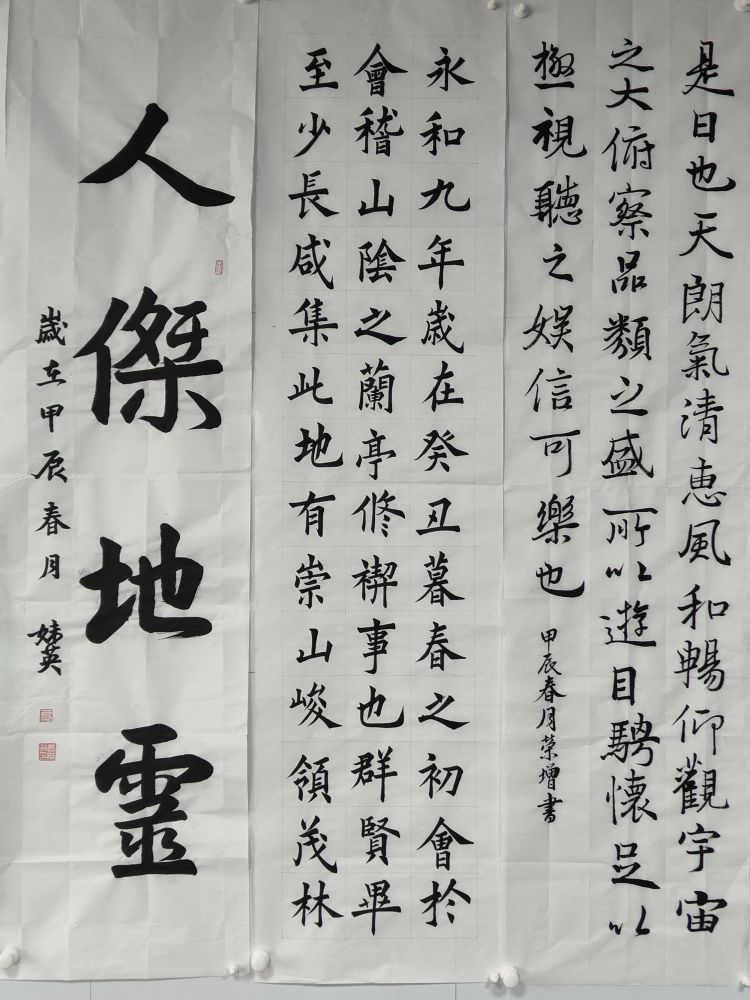 是日也天朗氣清惠風和暢仰觀宇宙
之大俯察品類之盛所以遊目騁懷足以
極視聽之娛信可樂也
甲辰春月榮增書
永和九年歲在癸丑暮春之初會於
會稽山陰之蘭亭修禊事也群賢畢
至少長咸集此地有崇山峻領茂林
人傑地靈
歲在甲辰春月
妹英